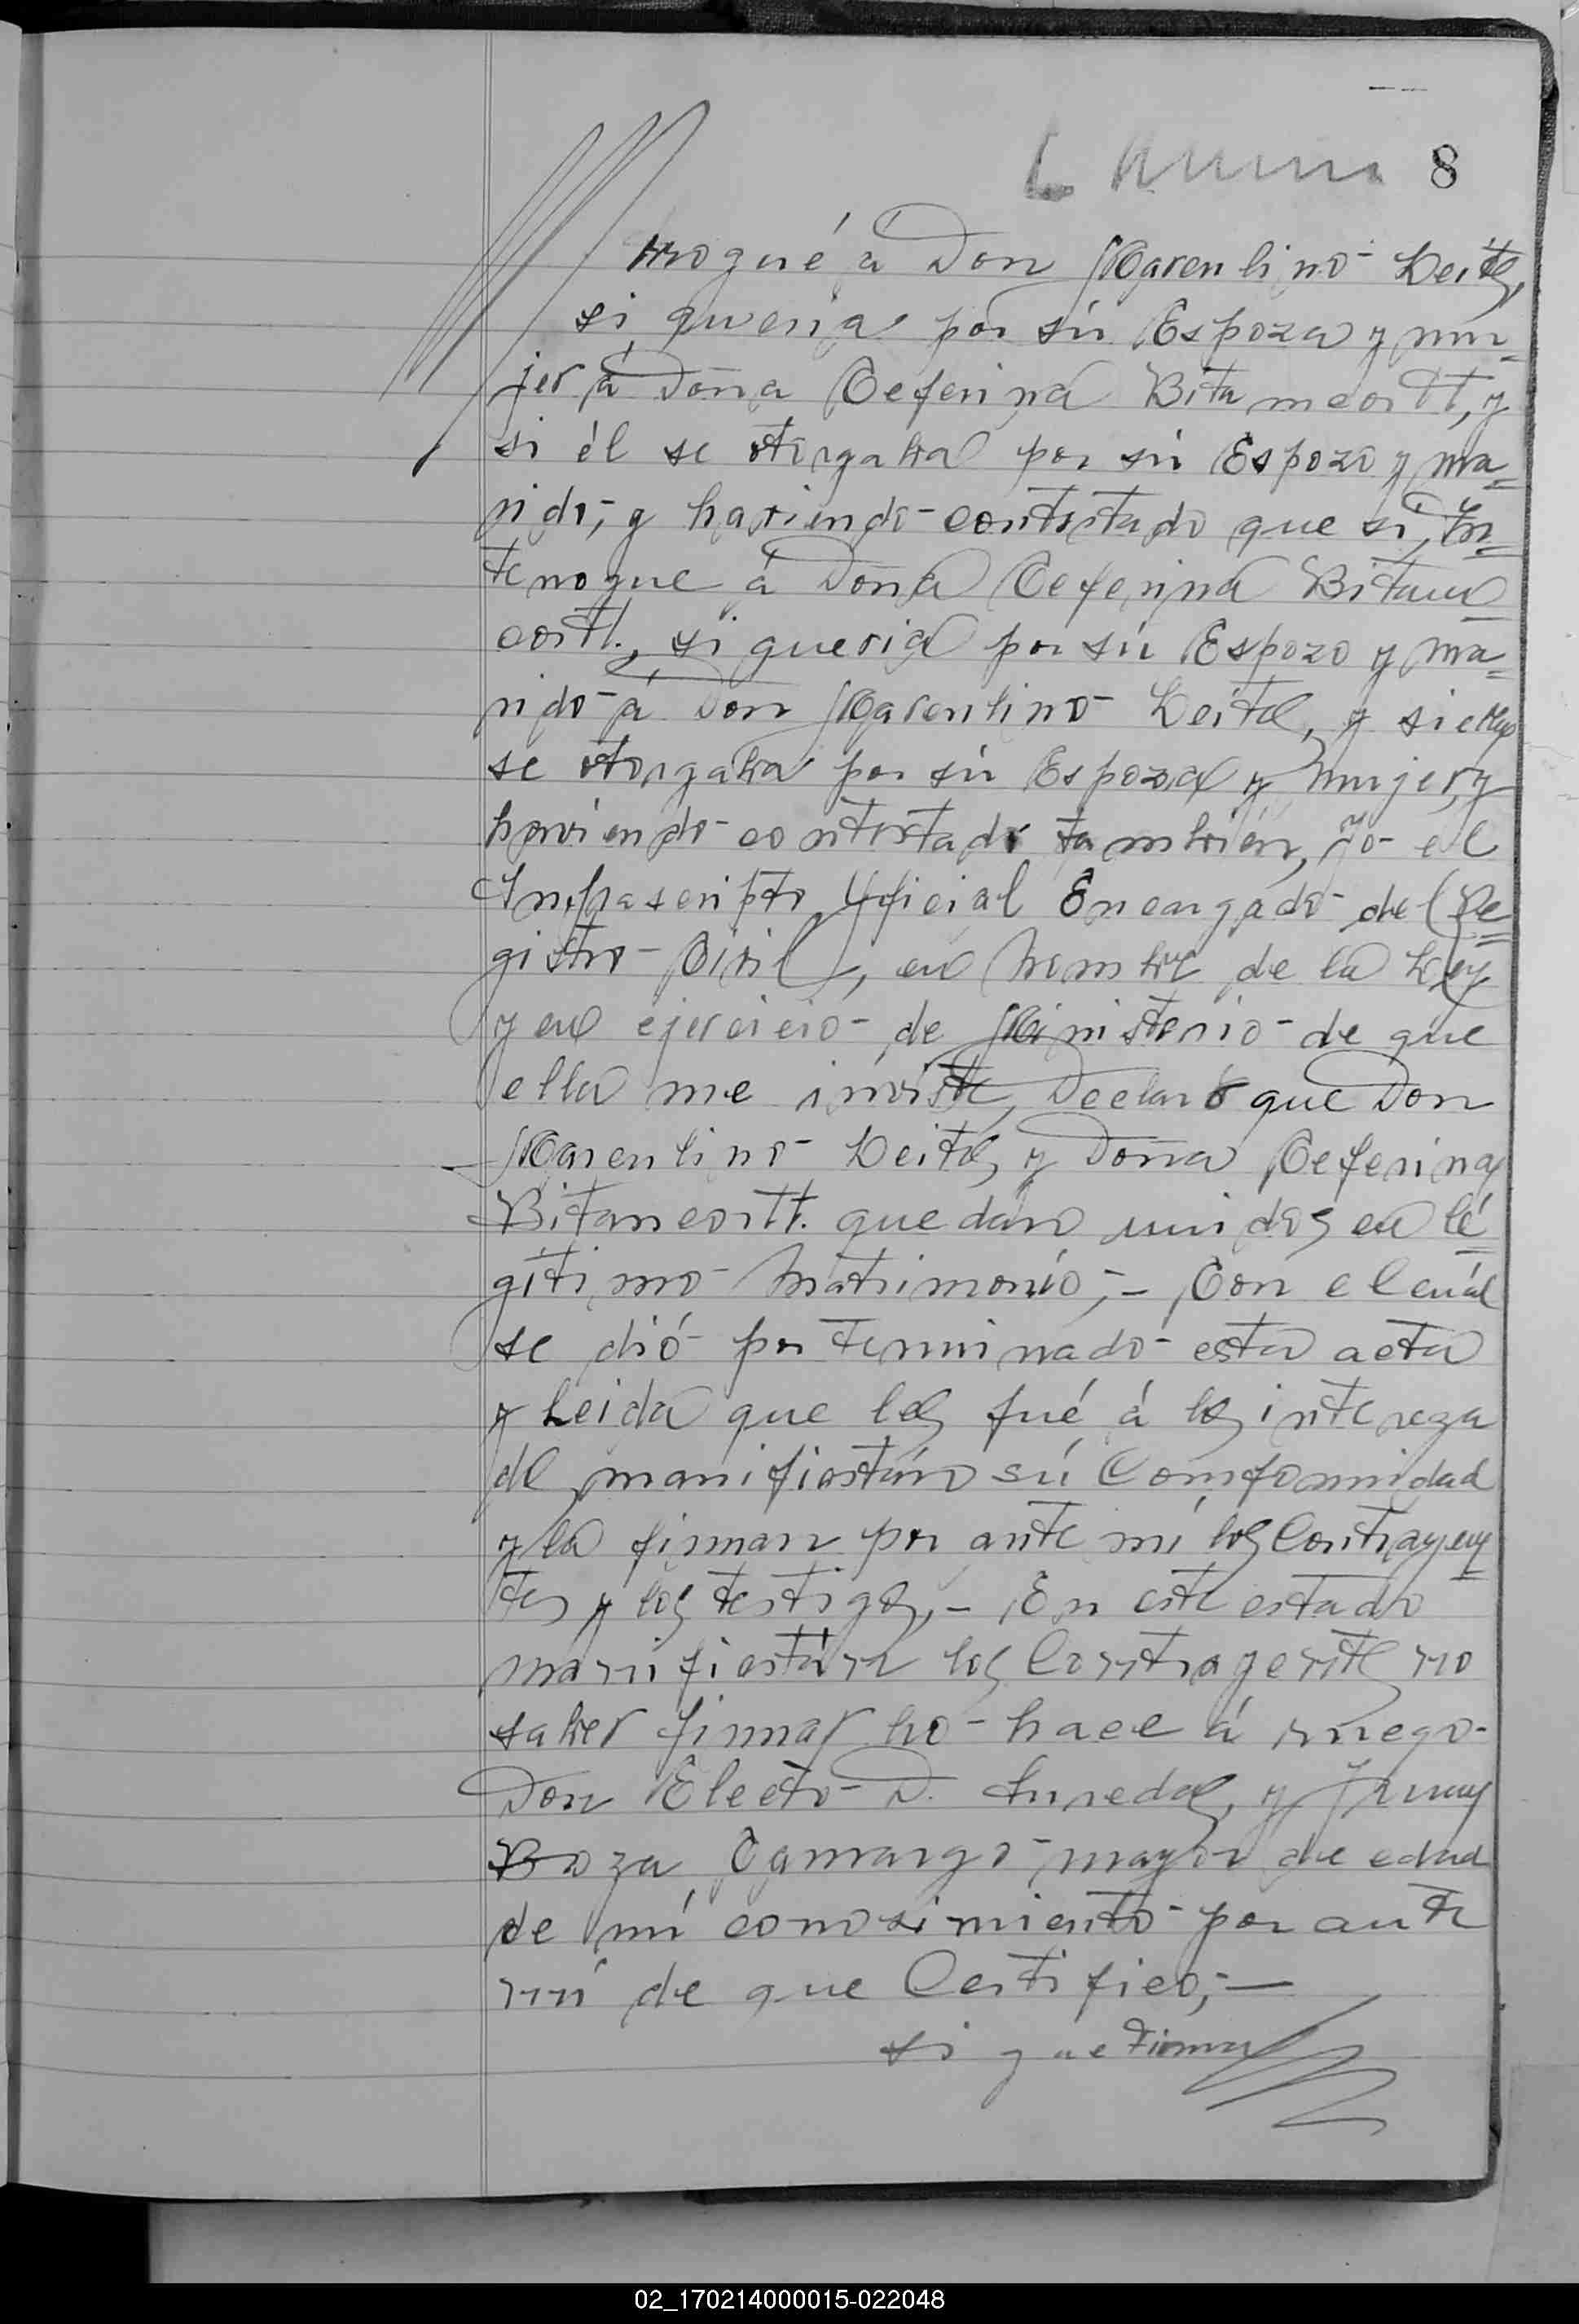 8
rrogué á Don Marcelino Leite,
si queria por sú Espoza y mu=
jer á Doña Ceferina Bitancortt, y
si él se otorgaba por sú Espozo y ma=
rido; y haviendo contestado que si, In=
terrogue á Doña Ceferina Bitan=
cortt., si queria por sú Espozo y ma=
rido á Don Marcelino Leite, y si ella
se otorgaba por sú Espoza y mujer, y
haviendo contestado tambien, yo el
Infrascripto Oficial Encargado del Re=
gistro Civil, en nombre de la Ley
y en ejercicio de Ministerio de que
ella me inviste, Declaro que Don
Marcelino Leite, y Doña Ceferina
Bitancortt. quedan unidos en lé=
gitimo Matrimonio;– Con el cuál
se dió por terminado esta acta
y Leida que les fué á los intereza
de manifiestán sú Comformidad
y la firman por ante mí los Contrayen=
tes y los testigos,– En este estado
manifiestán los Contrayente no
saber firmar lo hace á ruego
Don Electo D. y Juan
Boza Camargo mayor de edad
de mí conosimiento por ante
mí de que Certifico;—
sigue Firma
02_170214000015-022048